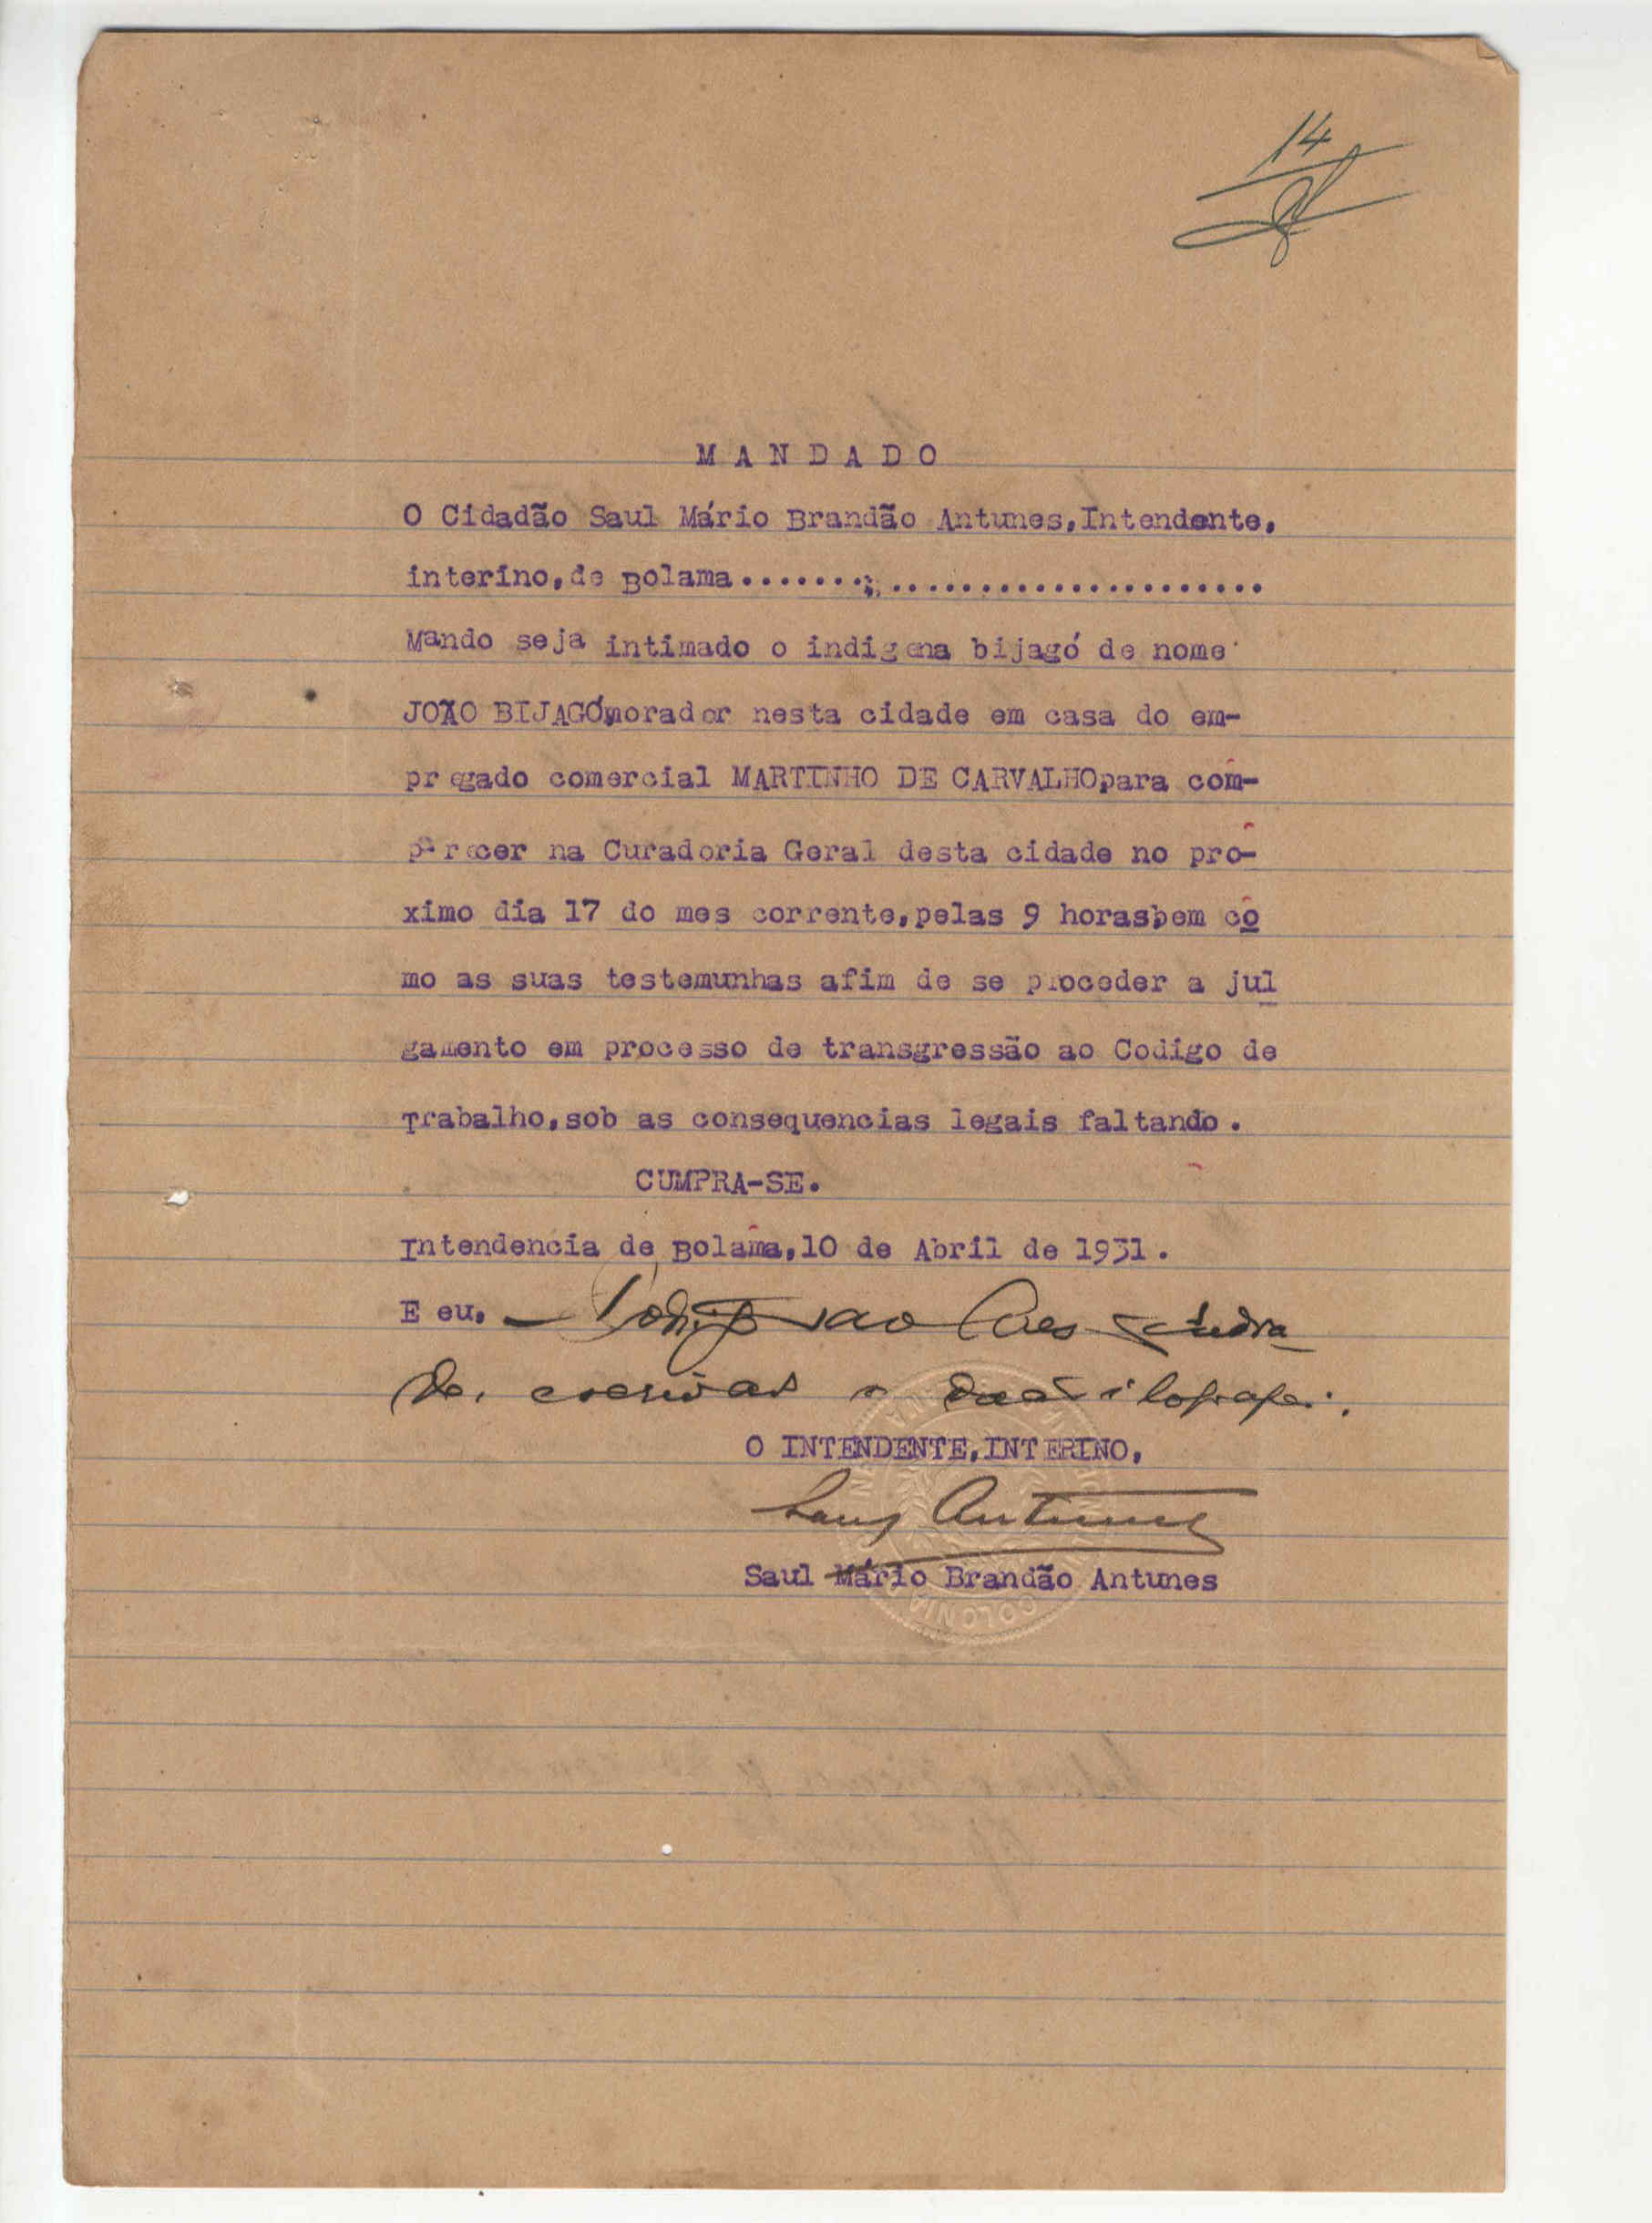 14
M A N D A D O
O Cidadão Saul Mário Brandão Antunes,Intendente,
interino,de Bolama..............................
Mando seja intimado o indigena bijagó de nome
JOÃO BIJAGÓ,morador nesta cidade em casa do em-
pregado comercial MARTINHO DE CARVALHO,para com-
parecer na Curadoria Geral desta cidade no pro-
ximo dia 17 do mes corrente,pelas 9 horas,bem co
mo as suas testemunhas afim de se proceder a jul
gamento em processo de transgressão ao Codigo de
Trabalho,sob as consequencias legais faltando.
CUMPRA-SE.
Intendencia de Bolama,10 de Abril de 1931.
E eu,
escrivão o dactilografei.
O INTENDENTE,INTERINO,
Saul Antunes
Saul Mário Brandão Antunes
COLONIA